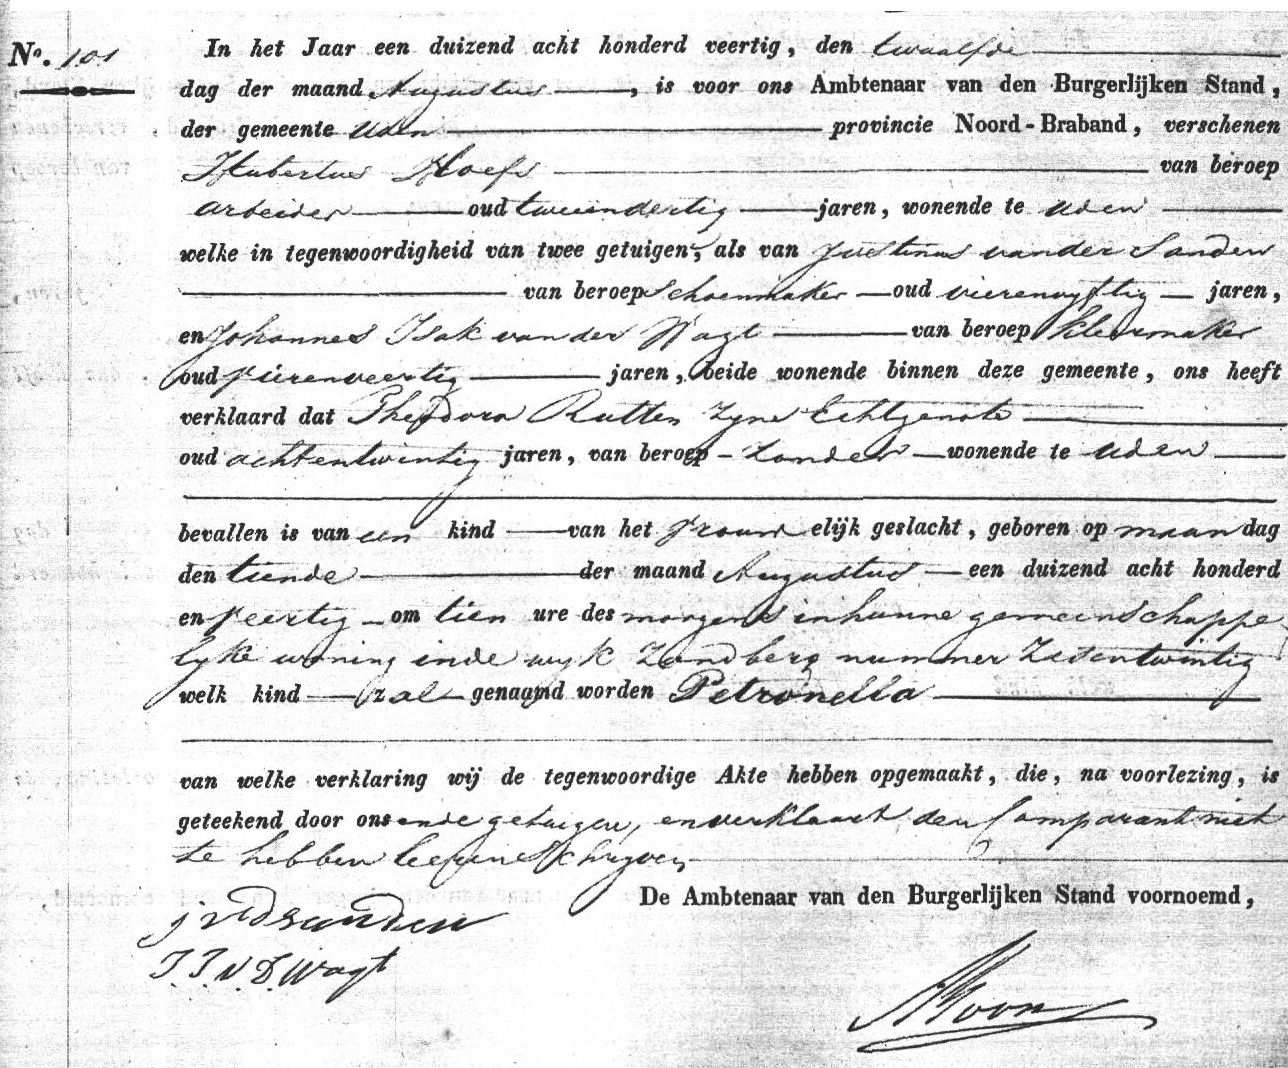 No. 101 In het Jaar een duizend acht honderd veertig, den twaalfde
dag der maand Augustus, is voor ons Ambtenaar van den Burgerlijken Stand,
der gemeente Uden provincie Noord-Braband, verschenen
Hubertus Hoefs van beroep
arbeider oud tweendertig jaren, wonende te Uden
welke in tegenwoordigheid van twee getuigen, als van Justinus vander Sanden
van beroep Schoenmaker oud vierenvyftig jaren,
en Johannes Isak van der Wagt van beroep kleermaker
oud vierenveertig jaren, beide wonende binnen deze gemeente, ons heeft
verklaard dat Theodora Rutten zyne Echtgenote
oud achtentwintig jaren, van beroep - zonder wonende te Uden
bevallen is van een kind van het vrouwelijk geslacht, geboren op maandag
den tiende der maand Augustus een duizend acht honderd
en veertig om tien ure des morgens in hunne gemeenschappe-
lyke woning inde wyk Zandberg nummer Zesentwintig
welk kind zal genaamd worden Petronella
van welke verklaring wij de tegenwoordige Akte hebben opgemaakt, die, na voorlezing, is
geteekend door ons ende getuigen, en verklaart den Comparant niet
te hebben leeren Schryven
De Ambtenaar van den Burgerlijken Stand voornoemd,
J vd Sanden
J. J. V. D. Wagt